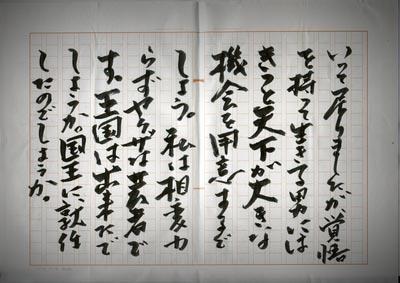 いって居りましたが覚悟
を持って生きてる男には
きっと天下が大きな
機会を用意するで
しょう。私は相変わ
らずヤクザは若者で
す。王国は出来たで
しょうか。国王に就任
したのでしょうか。